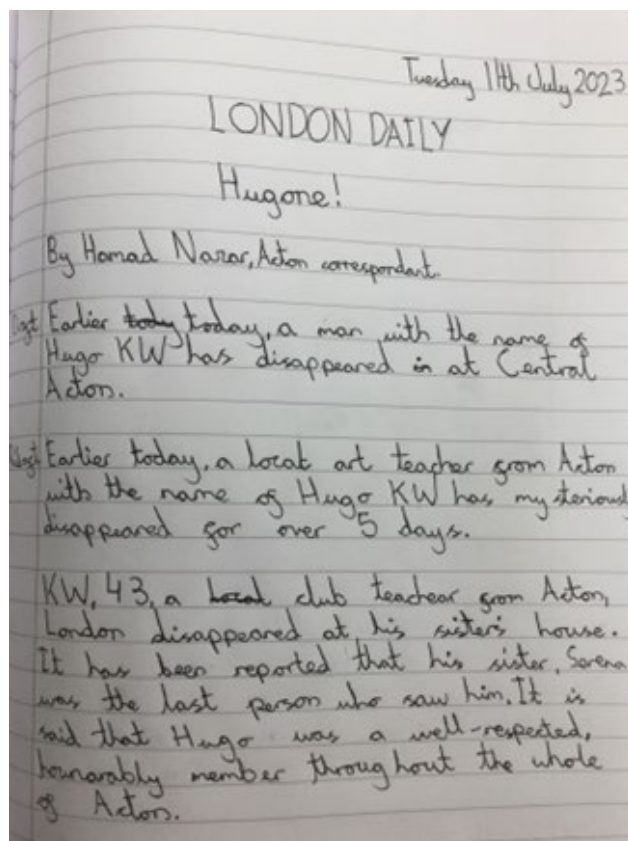 Tuesday 11th July 2023
LONDON DAILY
Hugone!
By Hamad Nazar, Acton correspondant.
Earlier tody today, a man with the name of
Hugo KW has disappeared in at Central
Acton.
Earlier today, a local art teacher from Acton
with the name of Hugo KW has mysteriously
disappeared for over 5 days.
KW, 43, a local club teachear from Acton,
London disappeared at his sister's house.
It has been reported that his sister, Serena
was the last person who saw him. It is
said that Hugo was a well-respected,
hounarably member throughout the whole
of Acton.